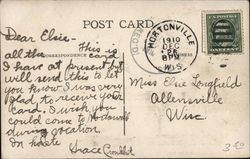 POST CARD
Dear Elsie-
This is
all the card
I have at present but
will send this to let
you know I was very
glad to receive your
card. I wish you
could come to
during vacation
in haste
Grace
CORRESPONDENCE
HORTONVILLE
1910
DEC
8 PM
WIS.
REC'D
Miss Elsie Longfield
Allenville
Wisc